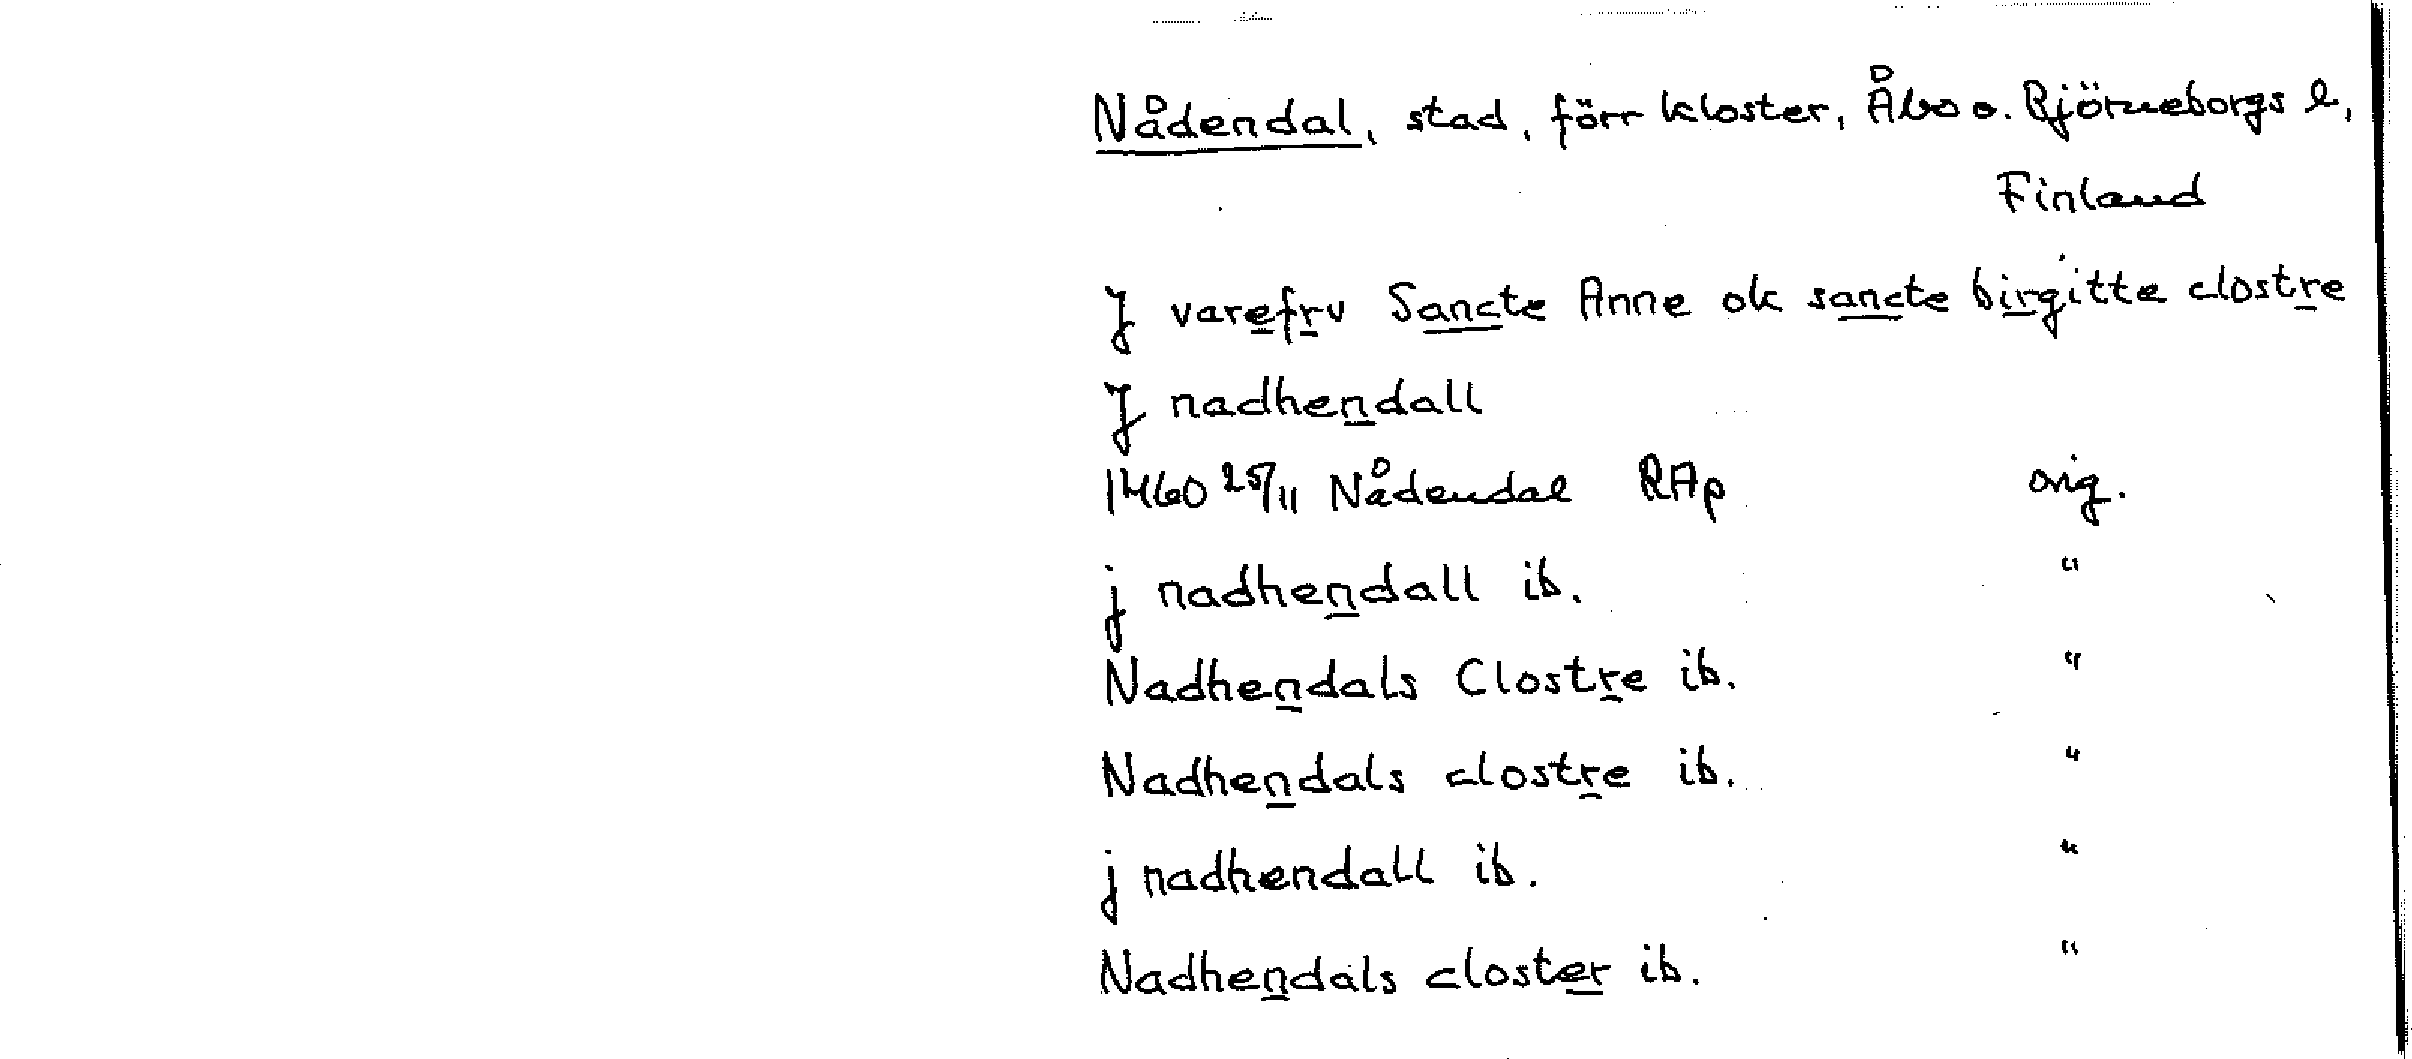 Nådendal, stad, förr kloster, Åbo o. Björneborgs l,
Finland
J varefrv Sancte Anne ok sancte birgitte clostre
J nadhendall
1460 25/11 Nådendal RAp orig.
j nadhendall ib. "
Nadhendals Clostre ib. "
Nadhendals clostre ib. "
j nadhendall ib. "
Nadhendals closter ib. "